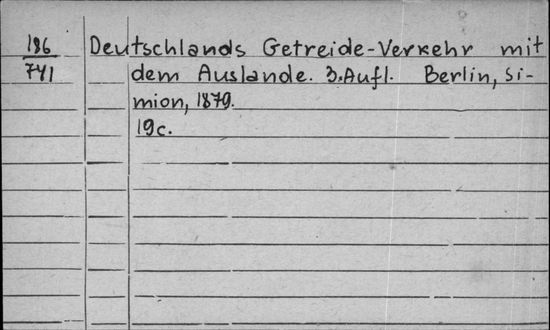 186 Deutschlands Getreide-Verkehr mit
741 dem Auslande. 3. Aufl. Berlin, Si-
mion, 1879.
19c.